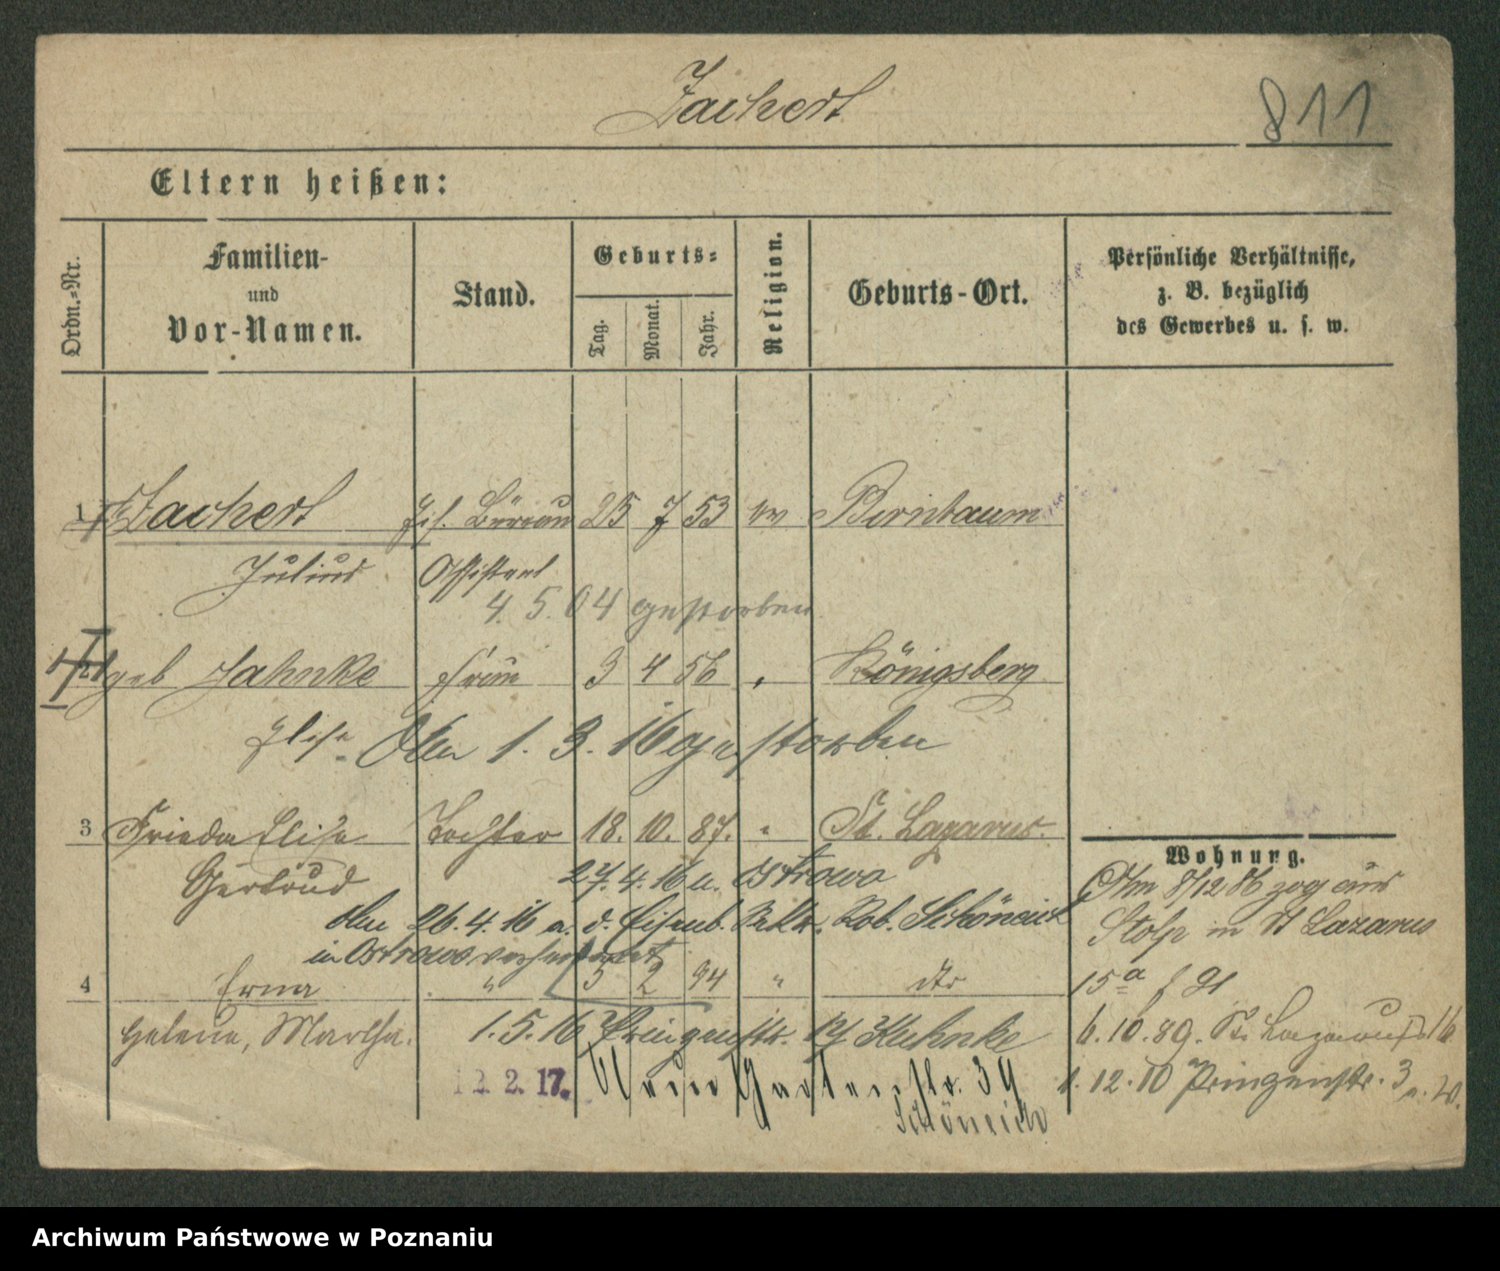 Zachert
811
Eltern heißen:
Ordn.-Nr.
Familien-
und
Vor-Namen.
Stand.
Geburts-
Tag.
Monat.
Jahr.
Religion.
Geburts-Ort.
Persönliche Verhältnisse,
z. B. bezüglich
des Gewerbes u. s. w.
1 Zachert Büreau 25 7 53 ev Birnbaum
Julius Assistent
4. 5. 04 gestorben
2 geb Jahnke Frau 3 4 56 " Königsberg
Elise Am 1. 3. 16 gestorben
3 Frieda Elise Tochter 18. 10. 87. " St. Lazarus.
Gertrud 27. 4. 16 n. Ostrowo
Am 26. 4. 16 a. d. Eisenb. Sekr. Rob. Schöneich
in Ostrowo verheiratet
4 Erna " 5 2 94 " dto
Helene, Martha. 1. 5. 16 Prinzenstr. Kuhnke
12. 2. 17. Neue Gartenstr. 39
Schöneich
Wohnung.
Am 8/12 86 zog aus
Stolp in St Lazarus
15a
6. 10. 89. St. Lazarusstr 16
1. 12. 10 Prinzenstr. 3
Archiwum Państwowe w Poznaniu